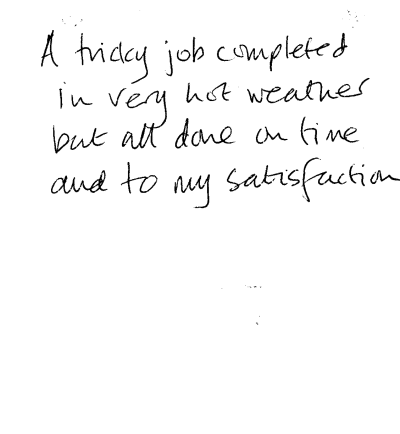 A tricky job completed
in very hot weather
but all done on time
and to my satisfaction